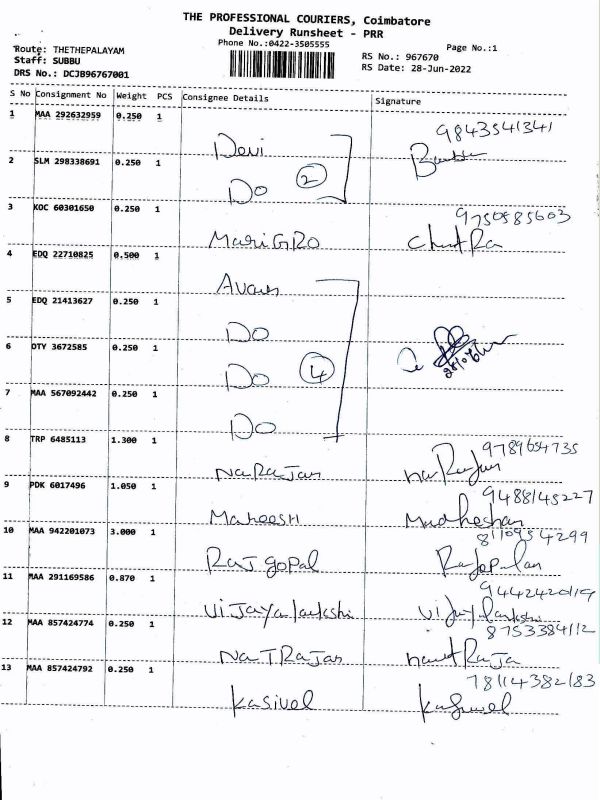 THE PROFESSIONAL COURIERS, Coimbatore
Delivery Runsheet - PRR
Phone No.:0422-3505555
Page No.:1
Route: THETHEPALAYAM
Staff: SUBBU
DRS No.: DCJB96767001
RS No.: 967670
RS Date: 28-Jun-2022
S No Consignment No Weight PCS Consignee Details Signature
1 MAA 292632959 0.250 1 Devi 9843541341
2 SLM 298338691 0.250 1 Do 2
3 KOC 60301650 0.250 1 MariGRO 9750585603 ChitRa
4 EDQ 22710825 0.500 1
5 EDQ 21413627 0.250 1 Do
6 DTY 3672585 0.250 1 Do 4
7 MAA 567092442 0.250 1 Do
8 TRP 6485113 1.300 1 NaRaJan 9789654735 NaRaJan
9 PDK 6017496 1.050 1 Maheesh 9488145227 Mudheshan
10 MAA 942201073 3.000 1 Raj gopal 8110954299 Rajopalan
11 MAA 291169586 0.870 1 ViJayalakshi
12 MAA 857424774 0.250 1 NaTRajan 8753384112
13 MAA 857424792 0.250 1 Kasivel 78114382183